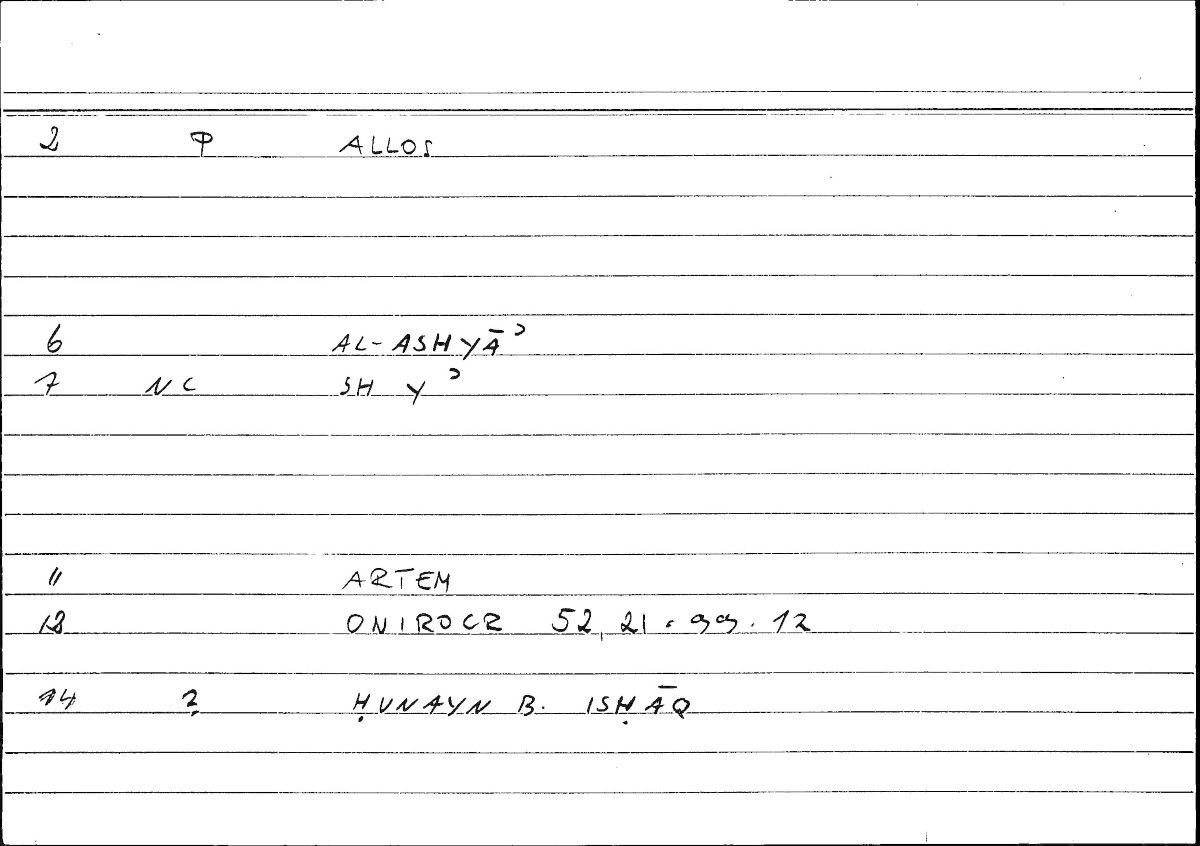 2 φ ALLOS
6 AL-ASHYĀʾ
7 NC SH Y ʾ
11 ARTEM
12 ONIROCR 52, 21 · 99. 12
14 ? ḤUNAYN B. ISḤĀQ